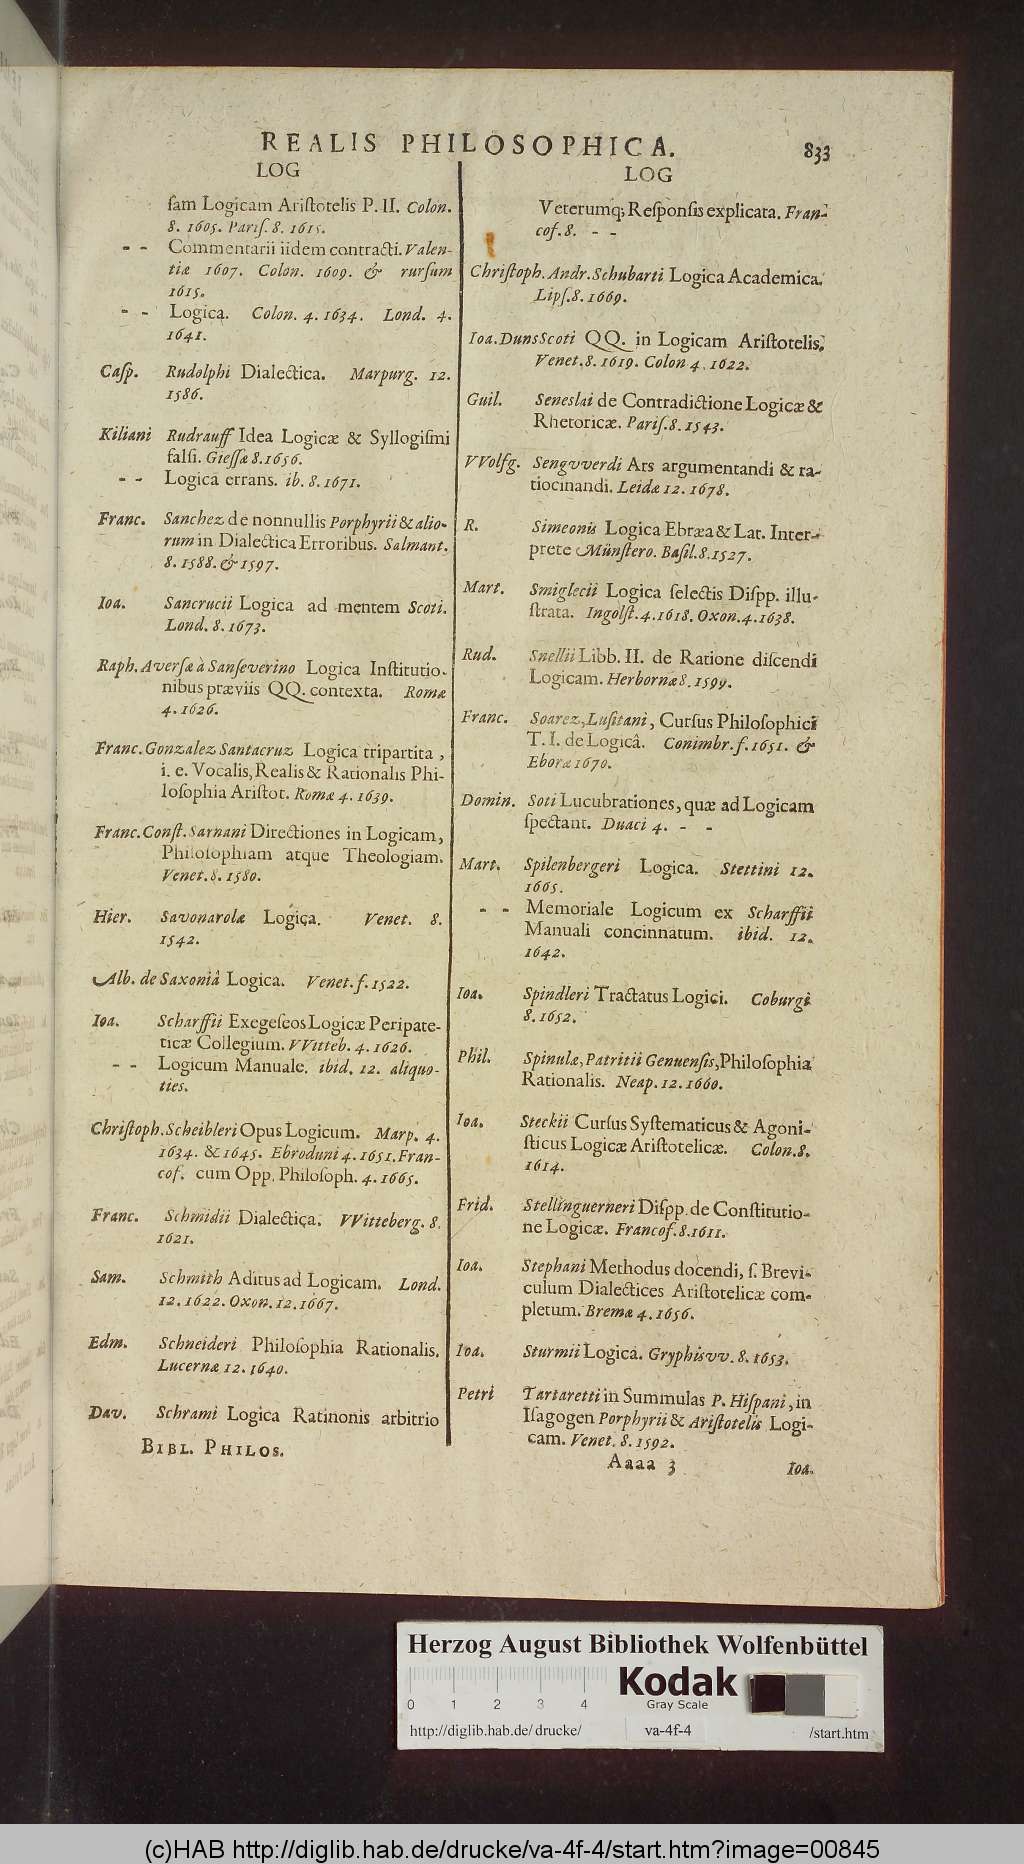 REALIS PHILOSOPHICA.
833
LOG
ſam Logicam Ariſtotelis P. II. Colon.
8. 1605. Pariſ. 8. 1615.
- - Commentarii iidem contracti. Valen-
tiæ 1607. Colon. 1609. & rurſum
1615.
- - Logica. Colon. 4. 1634. Lond. 4.
1641.
Caſp. Rudolphi Dialectica. Marpurg. 12.
1586.
Kiliani Rudrauff Idea Logicæ & Syllogiſmi
falſi. Gieſſæ 8. 1656.
- - Logica errans. ib. 8. 1671.
Franc. Sanchez de nonnullis Porphyrii & alio-
rum in Dialectica Erroribus. Salmant.
8. 1588. & 1597.
Ioa. Sancrucii Logica ad mentem Scoti.
Lond. 8. 1673.
Raph. Averſæ à Sanſeverino Logica Inſtitutio-
nibus præviis QQ. contexta. Romæ
4. 1626.
Franc. Gonzalez Santacruz Logica tripartita,
i. e. Vocalis, Realis & Rationalis Phi-
loſophia Ariſtot. Romæ 4. 1639.
Franc. Conſt. Sarnani Directiones in Logicam,
Philoſophiam atque Theologiam.
Venet. 8. 1580.
Hier. Savonarolæ Logica. Venet. 8.
1542.
Alb. de Saxoniâ Logica. Venet. f. 1522.
Ioa. Scharffii Exegeſeos Logicæ Peripate-
ticæ Collegium. VVitteb. 4. 1626.
- - Logicum Manuale. ibid. 12. aliquo-
ties.
Chriſtoph. Scheibleri Opus Logicum. Marp. 4.
1634. & 1645. Ebroduni 4. 1651. Fran-
cof. cum Opp. Philoſoph. 4. 1665.
Franc. Schmidii Dialectica. VVitteberg. 8.
1621.
Sam. Schmith Aditus ad Logicam. Lond.
12. 1622. Oxon. 12. 1667.
Edm. Schneideri Philoſophia Rationalis.
Lucernæ 12. 1640.
Dav. Schrami Logica Ratinonis arbitrio
BIBL. PHILOS.
LOG
Veterumq; Reſponſis explicata. Fran-
cof. 8. - -
Chriſtoph. Andr. Schubarti Logica Academica.
Lipſ. 8. 1669.
Ioa. Duns Scoti QQ. in Logicam Ariſtotelis.
Venet. 8. 1619. Colon 4. 1622.
Guil. Seneslai de Contradictione Logicæ &
Rhetoricæ. Pariſ. 8. 1543.
VVolfg. Sengvverdi Ars argumentandi & ra-
tiocinandi. Leidæ 12. 1678.
R. Simeonis Logica Ebræa & Lat. Inter-
prete Münſtero. Baſil. 8. 1527.
Mart. Smiglecii Logica ſelectis Diſpp. illu-
ſtrata. Ingolſt. 4. 1618. Oxon. 4. 1638.
Rud. Snellii Libb. II. de Ratione diſcendi
Logicam. Herbornæ 8. 1599.
Franc. Soarez, Luſitani, Curſus Philoſophici
T. I. de Logicâ. Conimbr. f. 1651. &
Eboræ 1670.
Domin. Soti Lucubrationes, quæ ad Logicam
ſpectant. Duaci 4. - -
Mart. Spilenbergeri Logica. Stettini 12.
1665.
- - Memoriale Logicum ex Scharffii
Manuali concinnatum. ibid. 12.
1642.
Ioa. Spindleri Tractatus Logici. Coburgi
8. 1652.
Phil. Spinulæ, Patritii Genuenſis, Philoſophia
Rationalis. Neap. 12. 1660.
Ioa. Steckii Curſus Syſtematicus & Agoni-
ſticus Logicæ Ariſtotelicæ. Colon. 8.
1614.
Frid. Stellinguerneri Diſpp. de Conſtitutio-
ne Logicæ. Francof. 8. 1611.
Ioa. Stephani Methodus docendi, ſ. Brevi-
culum Dialectices Ariſtotelicæ com-
pletum. Bremæ 4. 1656.
Ioa. Sturmii Logica. Gryphisvv. 8. 1653.
Petri Tartaretti in Summulas P. Hiſpani, in
Iſagogen Porphyrii & Ariſtotelis Logi-
cam. Venet. 8. 1592.
Aaaa 3
Ioa.
Herzog August Bibliothek Wolfenbüttel
Kodak
Gray Scale
0 1 2 3 4
http://diglib.hab.de/drucke/ va-4f-4 /start.htm
(c)HAB http://diglib.hab.de/drucke/va-4f-4/start.htm?image=00845